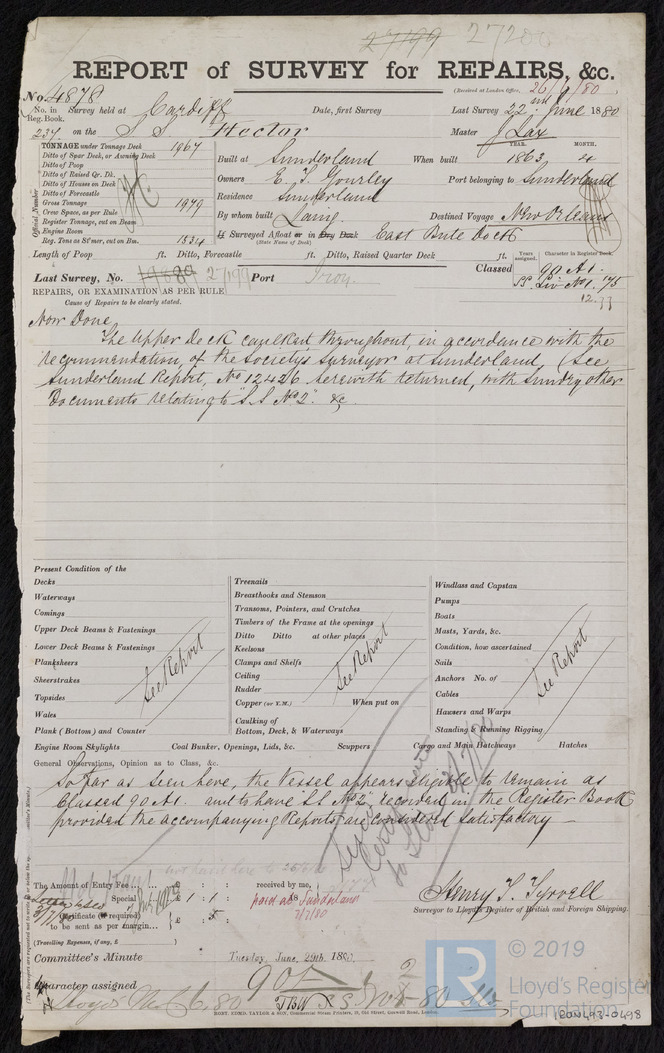 27199 27200
REPORT of SURVEY for REPAIRS, &c.
(Received at London Office, 26/6/80
No. 4878
No. in Reg. Book. Survey held at Cardiff Date, first Survey Last Survey 22nd June 1880
237 on the S S Hector Master J Lax
TONNAGE under Tonnage Deck 1967
Ditto of Spar Deck, or Awning Deck
Ditto of Poop
Ditto of Raised Qr. Dk.
Ditto of Houses on Deck
Ditto of Forecastle
Gross Tonnage 1979
Crew Space, as per Rule
Register Tonnage, cut on Beam
Engine Room
Reg. Tons as St'mer, cut on Bm. 1534
Official Number
Built at Sunderland When built YEAR. 1863 MONTH. 4
Owners E. T. Gourley Port belonging to Sunderland
Residence Sunderland
By whom built Laing. Destined Voyage New Orleans
If Surveyed Afloat or in Dry Dock East Bute Dock
(State Name of Dock)
Length of Poop ft. Ditto, Forecastle ft. Ditto, Raised Quarter Deck ft.
Years assigned. Character in Register Book.
Classed 90 A1.
SS. Liv No 1. 75
12.77
Last Survey, No. 19689 27199 Port Iron.
REPAIRS, OR EXAMINATION AS PER RULE
Cause of Repairs to be clearly stated.
Now Done
The Upper Deck caulked throughout, in accordance with the
recommendation, of the Society's Surveyor at Sunderland, (See
Sunderland Report, No 12426 herewith returned, with sundry other
Documents relating to "S.S No 2". &c
Present Condition of the
Decks
Waterways
Comings
Upper Deck Beams & Fastenings
Lower Deck Beams & Fastenings
Planksheers
Sheerstrakes
Topsides
Wales
Plank (Bottom) and Counter
See Report
Treenails
Breasthooks and Stemson
Transoms, Pointers, and Crutches
Timbers of the Frame at the openings
Ditto Ditto at other places
Keelsons
Clamps and Shelfs
Ceiling
Rudder
Copper (or Y.M.) When put on
Caulking of
Bottom, Deck, & Waterways
See Report
Windlass and Capstan
Pumps
Boats
Masts, Yards, &c.
Condition, how ascertained
Sails
Anchors No. of
Cables
Hawsers and Warps
Standing & Running Rigging
See Report
Engine Room Skylights Coal Bunker, Openings, Lids, &c. Scuppers Cargo and Main Hatchways Hatches
General Observations, Opinion as to Class, &c.
So far as seen here, the Vessel appears eligible to remain as
Classed 90 A1. and to have S.S. No 2, recorded in the Register Book
provided the accompanying Reports are considered satisfactory
The Amount of Entry Fee
Special £ 1 : 1 :
received by me,
paid at Sunderland
7/7/80
Certificate (if required)
to be sent as per margin
(Travelling Expenses, if any, £ )
Henry T. Tyrrell
Surveyor to Lloyd's Register of British and Foreign Shipping.
Committee's Minute Tuesday, June, 29th, 1880.
Character assigned 90A
Lloyds
© 2019
Lloyd's Register
Foundation
LRF-
CON493-0498